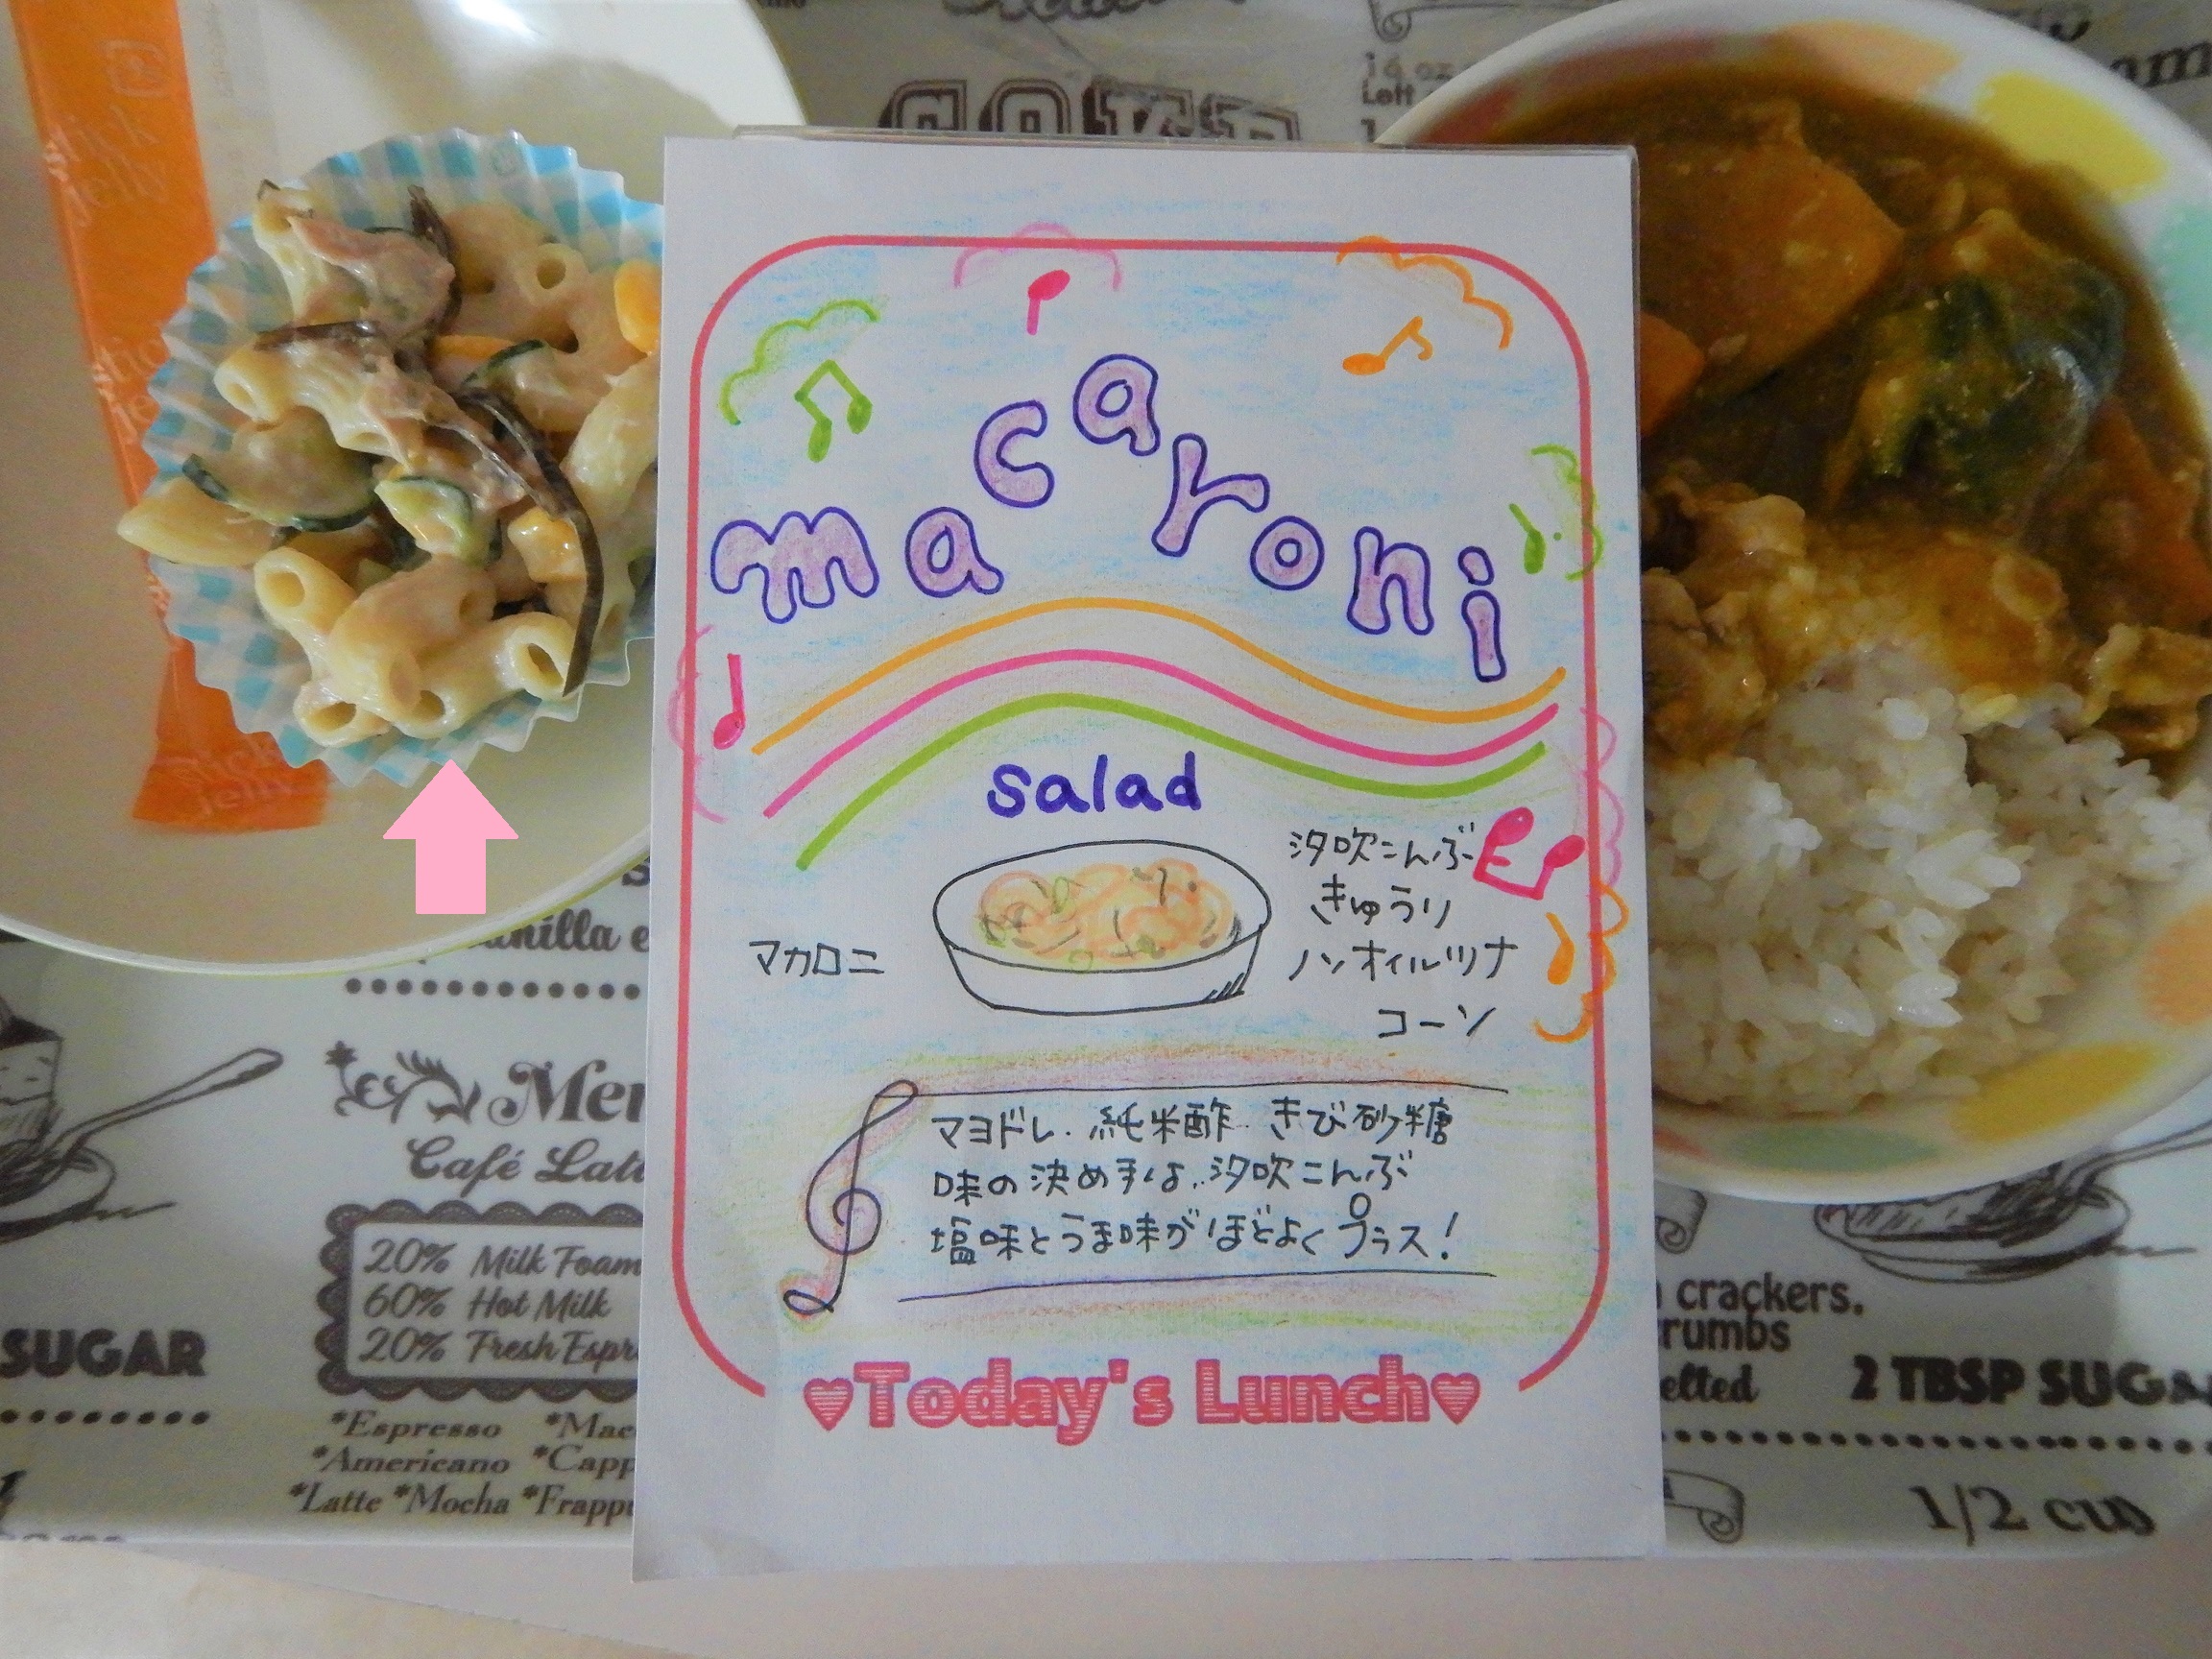 macaroni
salad
マカロニ
汐吹こんぶ
きゅうり
ノンオイルツナ
コーン
マヨドレ. 純米酢. きび砂糖
味の決め手は、汐吹こんぶ
塩味とうま味がほどよくプラス!
♥Today's Lunch♥
stick
jelly
COKE
16 oz
Left
SUGAR
Café
20% Milk Foam
60% Hot Milk
20% Fresh
*Espresso
*Americano
*Latte *Mocha
crackers.
2 TBSP
1/2